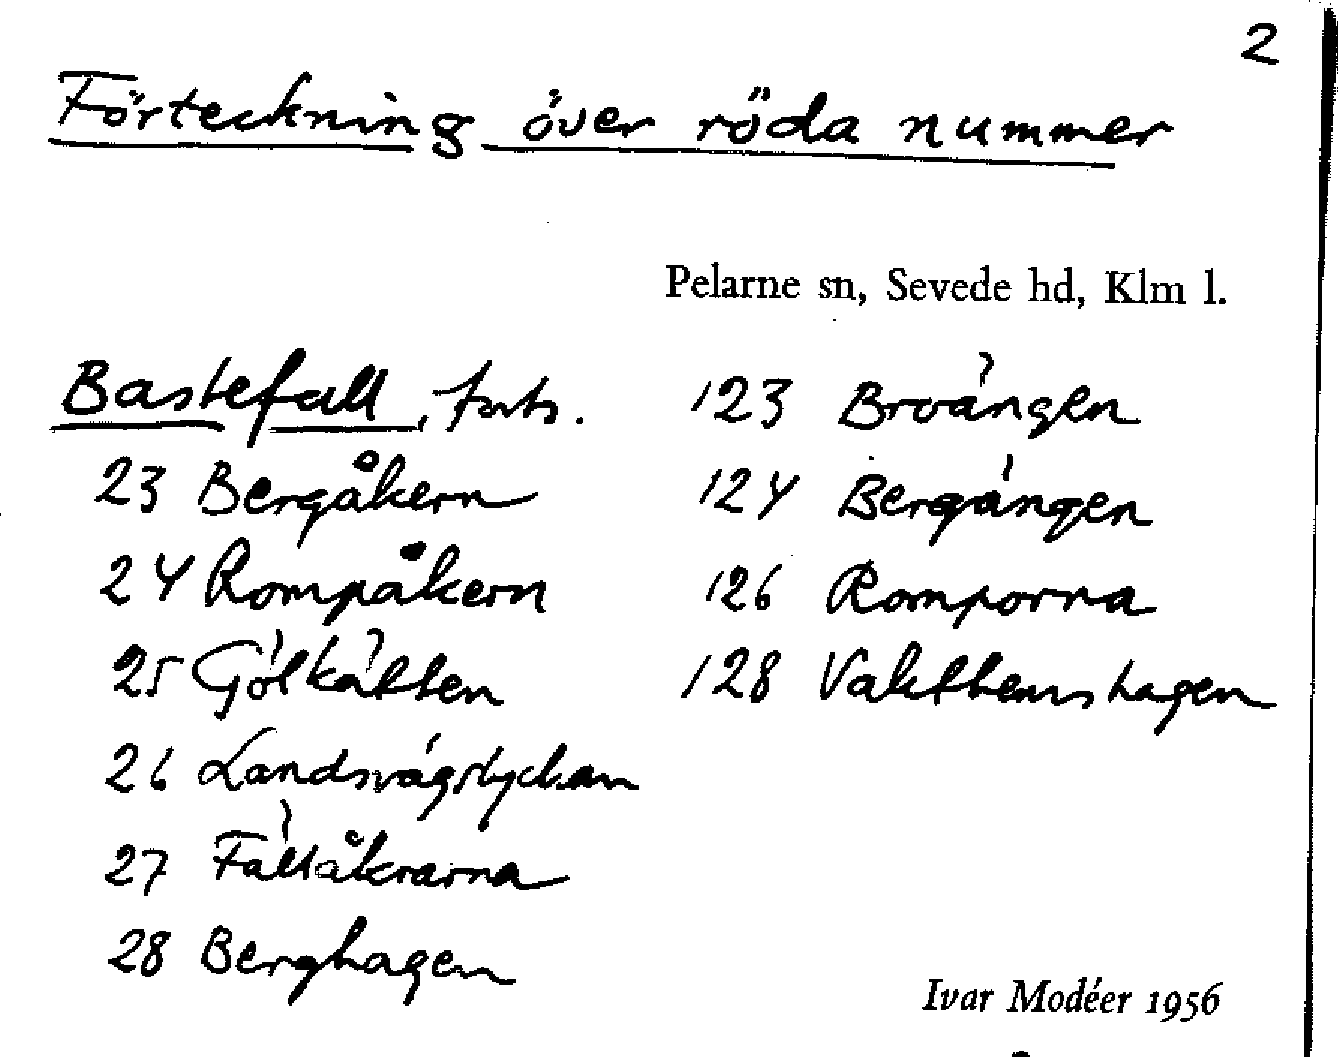 2
Förteckning över röda nummer
Pelarne sn, Sevede hd, Klm l.
Bastefall, forts.
23 Bergåkern
24 Rompåkern
25 Gölkätten
26 Landsvägslyckan
27 Fältåkrarna
28 Berghagen
123 Broängen
124 Bergängen
126 Romporna
128 Vakthemshagen
Ivar Modéer 1956